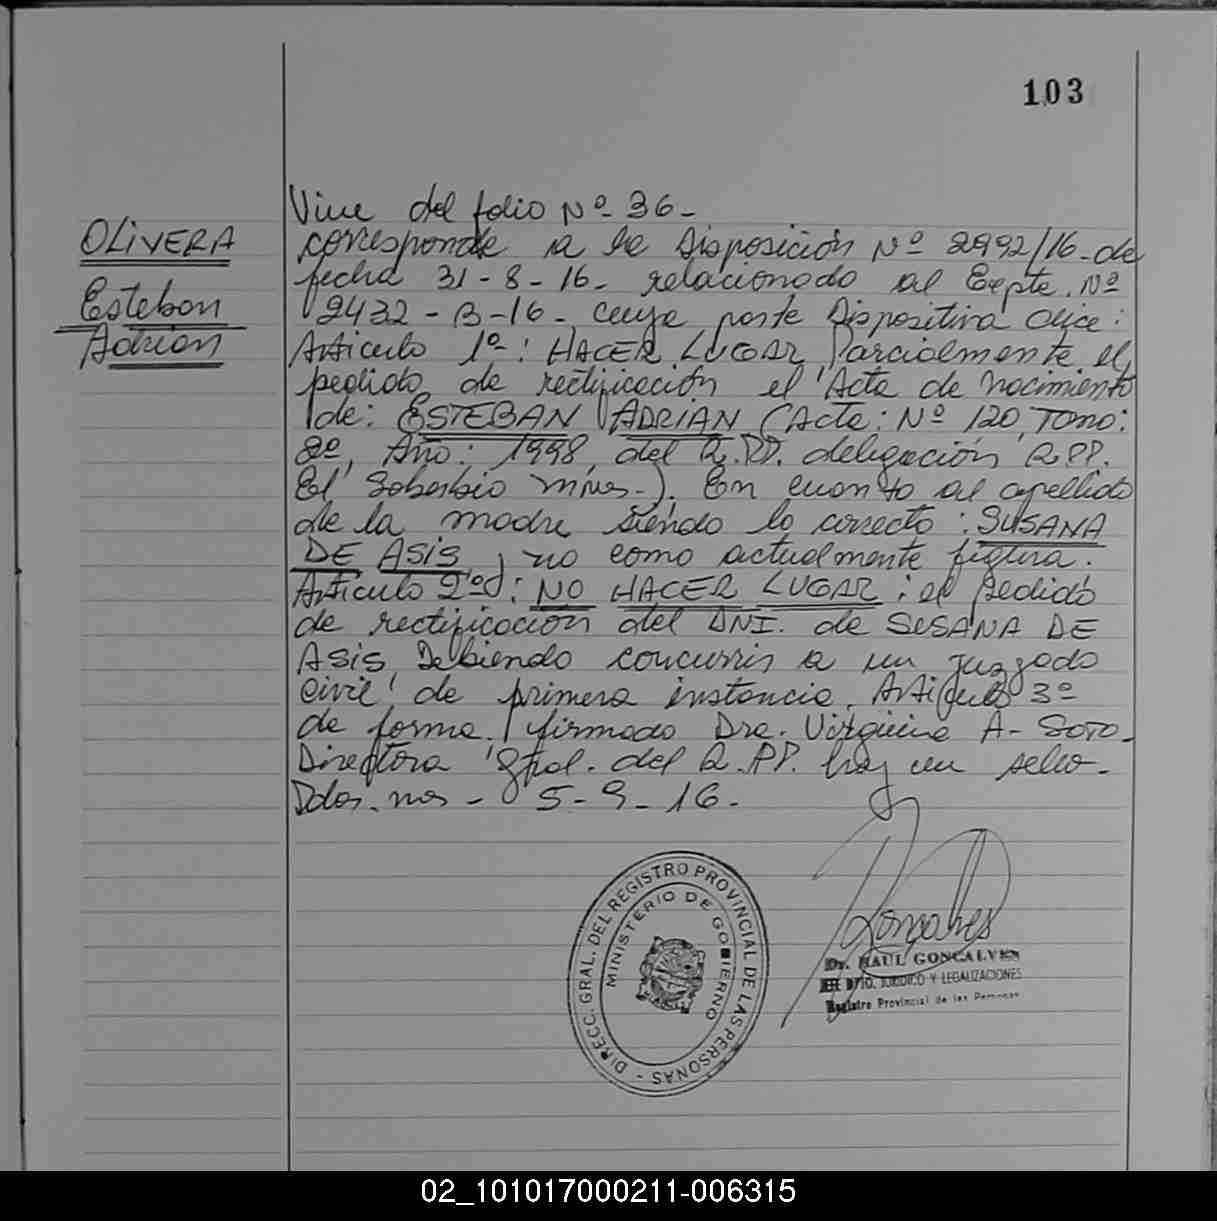 103
OLIVERA
Esteban
Adrian
Viene del folio Nº 36-
corresponde a la Disposición Nº 2992/16-de
fecha 31-8-16- relacionado al Expte. Nº
2432-B-16-, cuya parte Dispositiva dice:
Articulo 1º: HACER LUGAR Parcialmente el
pedido de rectificación el Acta de nacimiento
de: ESTEBAN ADRIAN (Acta: Nº 120, Tomo:
2º, Año: 1998, del R.PP. delegación R.PP.
El Soberbio Mnes-). En cuanto al apellido
de la madre siendo lo correcto: SUSANA
DE ASIS, y no como actualmente figura.
Articulo 2º: NO HACER LUGAR: el pedido
de rectificación del DNI. de SUSANA DE
ASIS, Debiendo concurrir a un juzgado
civil de primera instancia. Articulo 3º
de forma. firmado Dra. Virginia A- SOTO-
Directora Gral. del R.PP. hay un sello-
Pdas. mnes- 5-9-16-
DIRECC. GRAL. DEL REGISTRO PROVINCIAL DE LAS PERSONAS -
MINISTERIO DE GOBIERNO
Goncalves
Dr. RAUL GONCALVES
JEFE DPTO. JURIDICO Y LEGALIZACIONES
Registro Provincial de las Personas
02_101017000211-006315